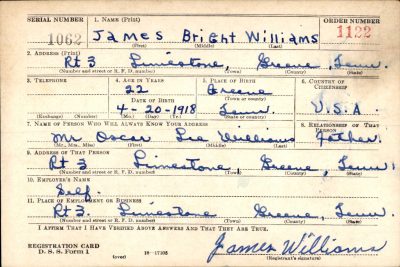 SERIAL NUMBER 1. NAME (Print) ORDER NUMBER
1062 James Bright Williams 1122
(First) (Middle) (Last)
2. ADDRESS (Print)
Rt 3 Limestone, Greene, Tenn.
(Number and street or R. F. D. number) (Town) (County) (State)
3. TELEPHONE 4. AGE IN YEARS 5. PLACE OF BIRTH 6. COUNTRY OF CITIZENSHIP
22 Greene
(Town or county)
DATE OF BIRTH
4-20-1918 Tenn. U.S.A.
(Exchange) (Number) (Mo.) (Day) (Yr.) (State or country)
7. NAME OF PERSON WHO WILL ALWAYS KNOW YOUR ADDRESS 8. RELATIONSHIP OF THAT PERSON
Mr Oscar Williams Father
(Mr., Mrs., Miss) (First) (Middle) (Last)
9. ADDRESS OF THAT PERSON
Rt 3 Limestone, Greene, Tenn.
(Number and street or R. F. D. number) (Town) (County) (State)
10. EMPLOYER'S NAME
Self.
11. PLACE OF EMPLOYMENT OR BUSINESS
Rt 3. Limestone Greene, Tenn.
(Number and street or R. F. D. number) (Town) (County) (State)
I AFFIRM THAT I HAVE VERIFIED ABOVE ANSWERS AND THAT THEY ARE TRUE.
REGISTRATION CARD
D. S. S. Form 1 16-17105 James Williams
(over) (Registrant's signature)